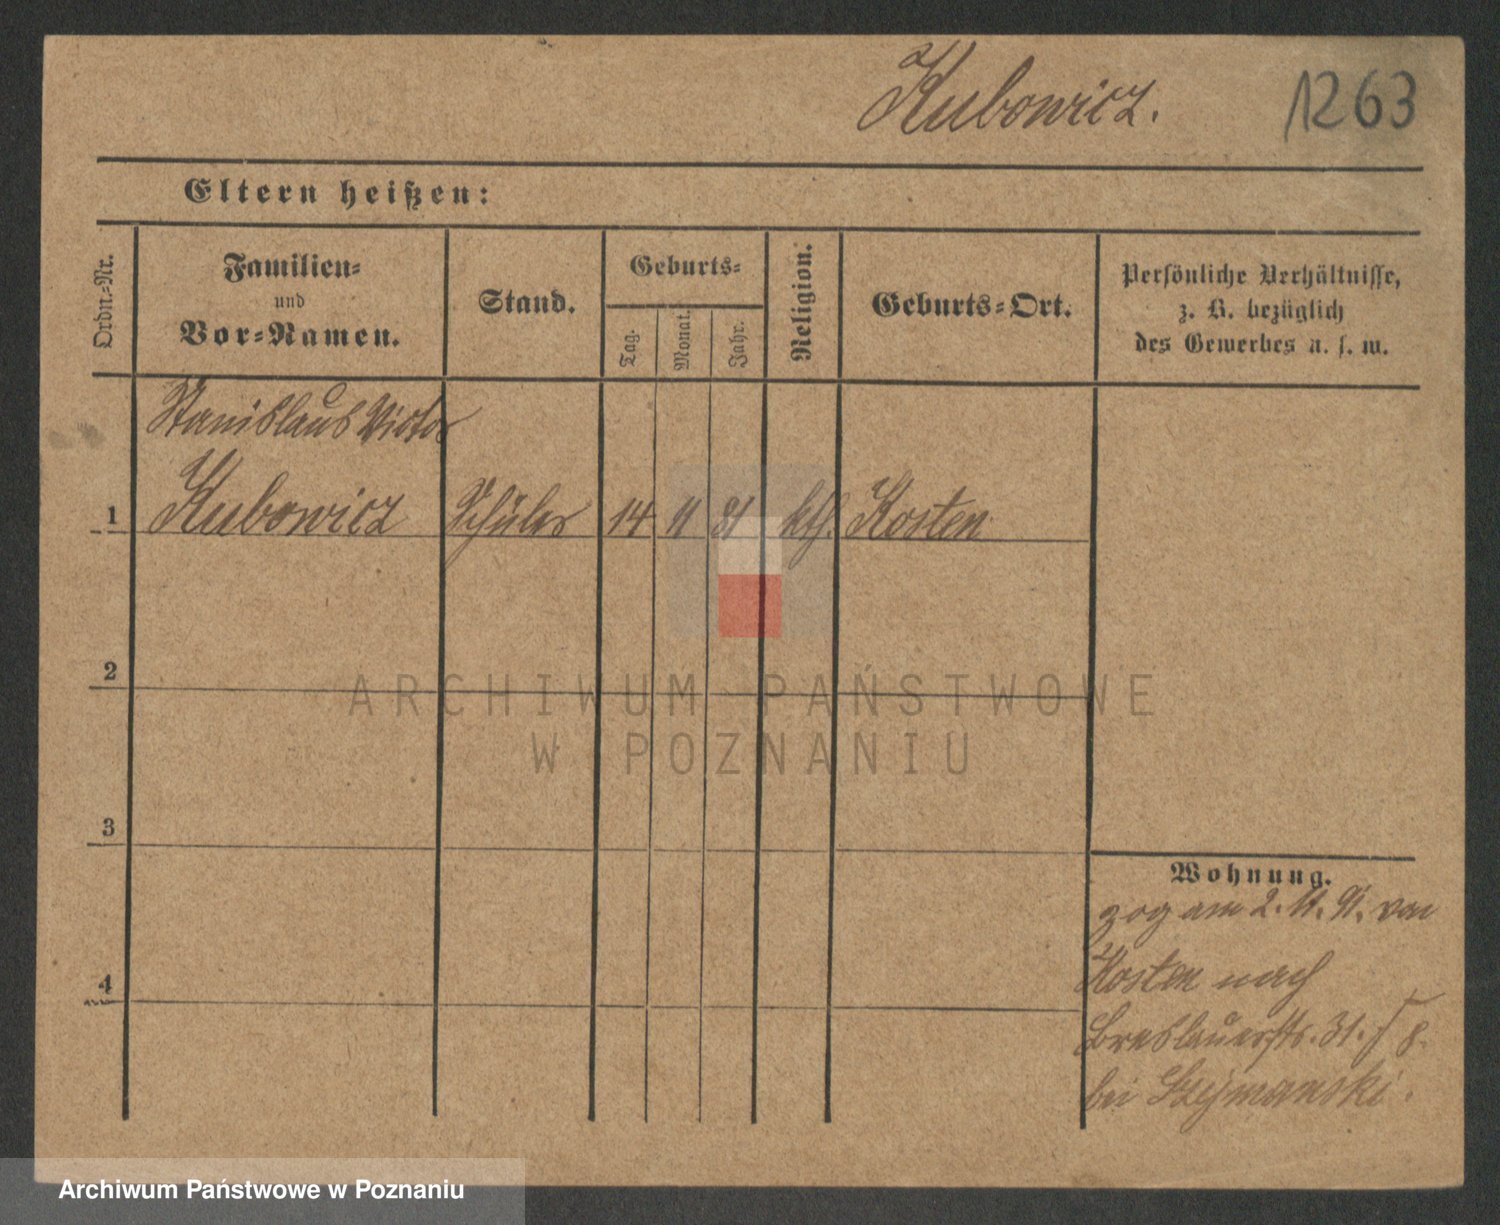 Kubowicz.
1263
Eltern heißen:
Ordn.-Nr.
Familien-
und
Vor-Namen.
Stand.
Geburts-
Tag.
Monat.
Jahr.
Religion.
Geburts-Ort.
Persönliche Verhältnisse,
z. B. bezüglich
des Gewerbes u. s. w.
Stanislaus Victor
1 Kubowicz Schüler 14 11 81 kth. Kosten
2
3
4
Wohnung.
zog am 2. 11. 91. von
Kosten nach
Breslauerstr. 31.
bei Szymanski.
ARCHIWUM PAŃSTWOWE
W POZNANIU
Archiwum Państwowe w Poznaniu